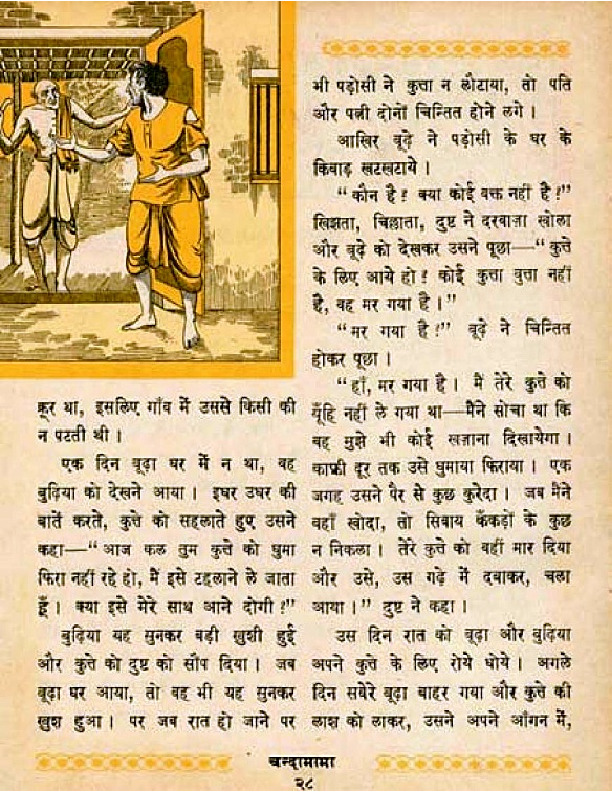 क्रूर था, इसलिए गाँव में उससे किसी की
न पटती थी ।
एक दिन बूढ़ा घर में न था, वह
बुढ़िया को देखने आया । इधर उधर की
बातें करते, कुत्ते को सहलाते हुए उसने
कहा—“ आज कल तुम कुत्ते को घुमा
फिरा नहीं रहे हो, मैं इसे टहलाने ले जाता
हूँ । क्या इसे मेरे साथ आने दोगी ?”
बुढ़िया यह सुनकर बड़ी खुशी हुई
और कुत्ते को दुष्ट को सौंप दिया । जब
बूढ़ा घर आया, तो वह भी यह सुनकर
खुश हुआ । पर जब रात हो जाने पर
भी पड़ोसी ने कुत्ता न लौटाया, तो पति
और पत्नी दोनों चिन्तित होने लगे ।
आखिर बूढ़े ने पड़ोसी के घर के
किवाड़ खटखटाये ।
“ कौन है ? क्या कोई वक्त नहीं है ?”
खिझता, चिल्लाता, दुष्ट ने दरवाज़ा खोला
और बूढ़े को देखकर उसने पूछा—“ कुत्ते
के लिए आये हो ? कोई कुत्ता वुत्ता नहीं
है, वह मर गया है ।”
“ मर गया है ?” बूढ़े ने चिन्तित
होकर पूछा ।
“ हाँ, मर गया है । मैं तेरे कुत्ते को
यूँहि नहीं ले गया था—मैंने सोचा था कि
वह मुझे भी कोई खज़ाना दिखायेगा ।
काफ़ी दूर तक उसे घुमाया फिराया । एक
जगह उसने पैर से कुछ कुरेदा । जब मैंने
वहाँ खोदा, तो सिवाय कँकड़ों के कुछ
न निकला । तेरे कुत्ते को वहीं मार दिया
और उसे, उस गढ़े में दबाकर, चला
आया ।” दुष्ट ने कहा ।
उस दिन रात को बूढ़ा और बुढ़िया
अपने कुत्ते के लिए रोये धोये । अगले
दिन सबेरे बूढ़ा बाहर गया और कुत्ते की
लाश को लाकर, उसने अपने आँगन में,
चन्दामामा
२८